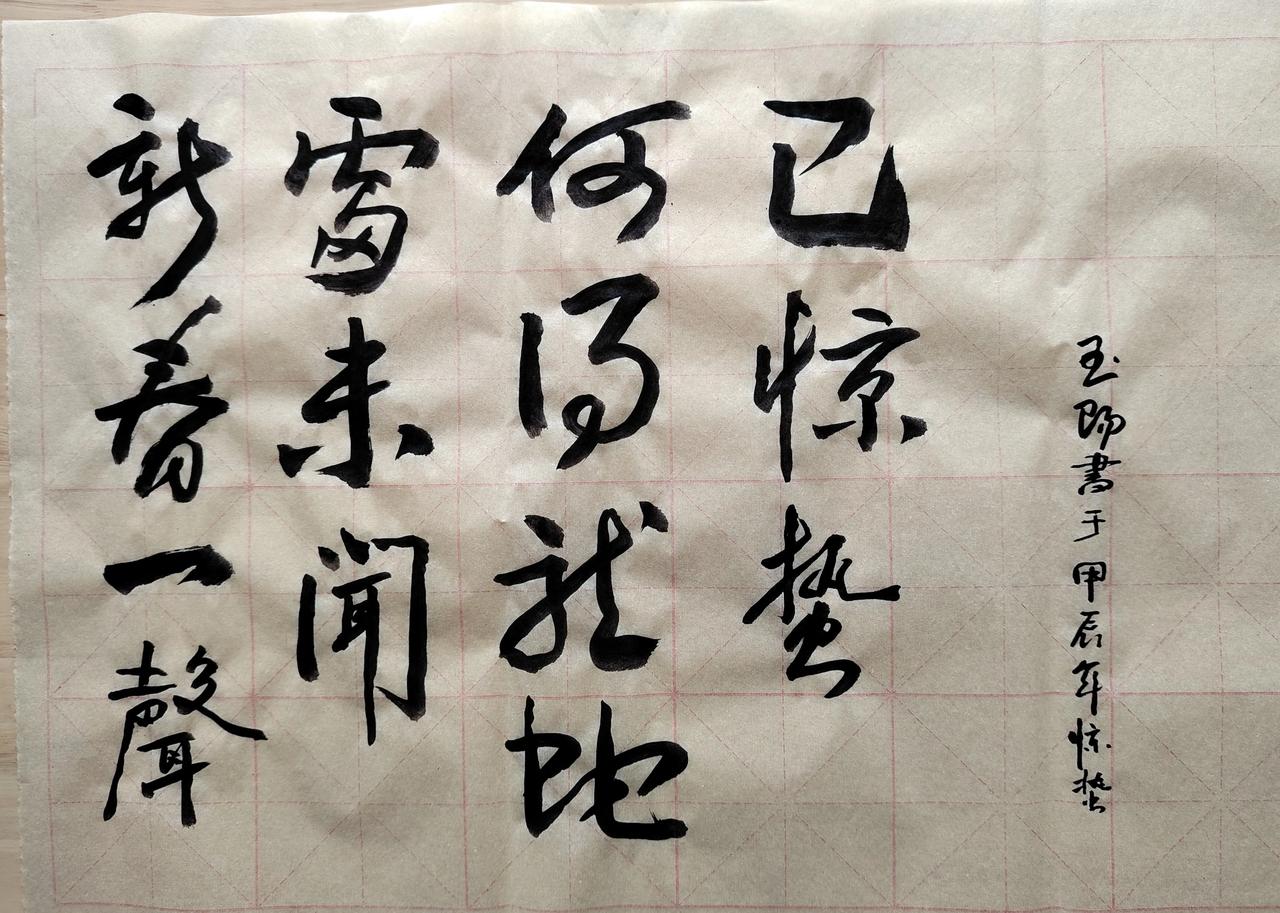 新春一聲
雷未聞
何得龍蛇
已惊蛰
玉書于甲辰年惊蛰